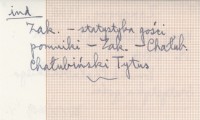 ind
Zak. – statystyka gości
pomniki – Zak. – Chałub.
Chałubiński Tytus